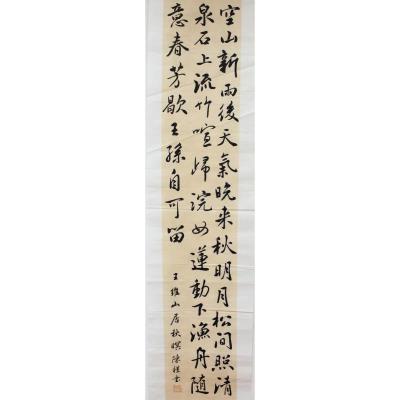 空山新雨後天氣晚来秋明月松间照清
泉石上流竹喧歸浣女蓮動下漁舟随
意春芳歇王孫自可留
王維山居秋暝陳 書